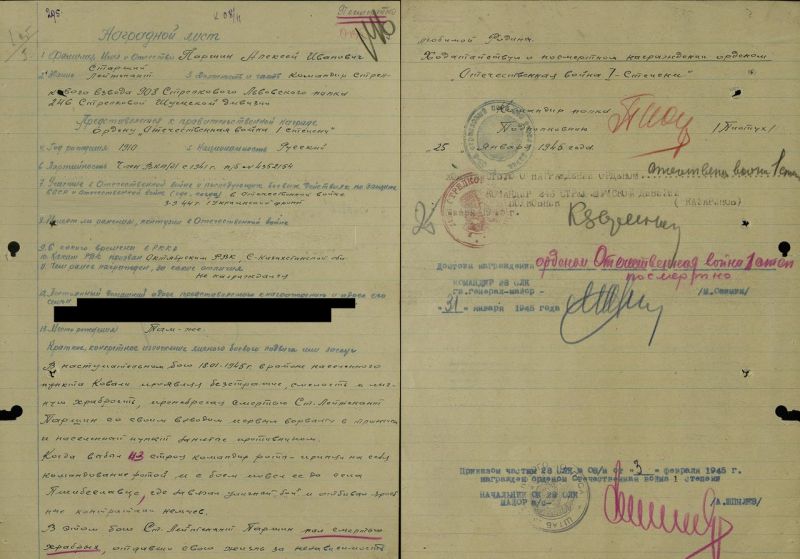 295
Посмертно
Наградной лист
1. Фамилия Имя и Отчество Паршин Алексей Иванович
Старший
2. Звание Лейтенант 3. Должность и часть Командир Стрел-
кового взвода 908 Стрелкового Львовского полка
246 Стрелковой Шумской дивизии
Представляется к правительственной награде
Ордену "Отечественная война I степени"
4. Год рождения 1910 5. Национальность Русский
6. Партийность Член ВКП(б) с 1941 г. п/б № 4352154
в Отечественной войне
3-9 44 г. 1 Украинский фронт
8. Имеет ли ранения, контузии в Отечественной войне
9. С какого времени в РККА
10. Каким РВК призван Октябрьским РВК, С-Казахстанской обл
11. Чем ранее награжден, за какие отличия
Не награждался
12. Постоянный домашний адрес представляемого к награждению и адрес его
семьи
13. Место рождения Там-же.
Краткое, конкретное изложение личного боевого подвига или заслуг
В наступательном бою 18.01.1945 г. в районе населенного
пункта Ковали проявляя безстрашие, смелость и лич-
ную храбрость, пренебрегая смертью Ст. Лейтенант
Паршин со своим взводом первым ворвался в траншеи
и населенный пункт занятые противником.
Когда выбыл из строя командир роты принял на себя
командование ротой и с боем вывел ее до села
где завязал уличный бой и отбивал яростные
контратаки немцев.
В этом бою Ст. Лейтенант Паршин пал смертью
храбрых, отдавши свою жизнь за независимость
любимой Родины.
Ходатайствую о посмертном награждении орденом
"Отечественная война I-Степени"
Командир полка
Подполковник /Пистух/
"25" Января 1945 года
О НАГРАЖДЕНИИ ОРДЕНОМ отечествен. война 1 степ
КОМАНДИР 246 СТРЕЛ. ШУМСКОЙ ДИВИЗИИ
ПОЛКОВНИК (КАЗАРИНОВ)
января 1945 г.
Достоин награждения орденом Отечественная война 1 степ
посмертно
КОМАНДИР 28 СЛК
гв. генерал-майор -
"31" января 1945 года
Приказом частям 28 СЛК № 08/н от "3" февраля 1945 г.
награжден орденом Отечественная война 1 степени
НАЧАЛЬНИК ОК 28 СЛК
МАЙОР а/с-